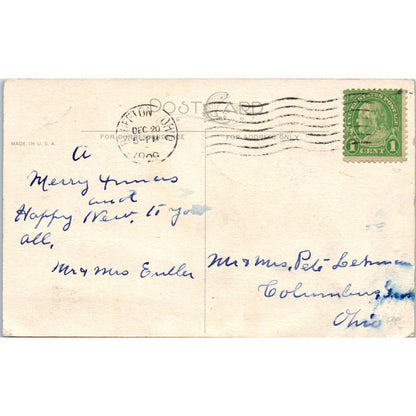 POSTCARD
OHIO
DEC 20
5-PM
1929
FOR CORRESPONDENCE
FOR ADDRESS ONLY
MADE IN U.S.A.
UNITED STATES POSTAGE
1 CENT 1
A
Merry Xmas
and
Happy New. to you
all,
Mr & Mrs
Mr & Mrs. Pete Lehman
Columbus
Ohio